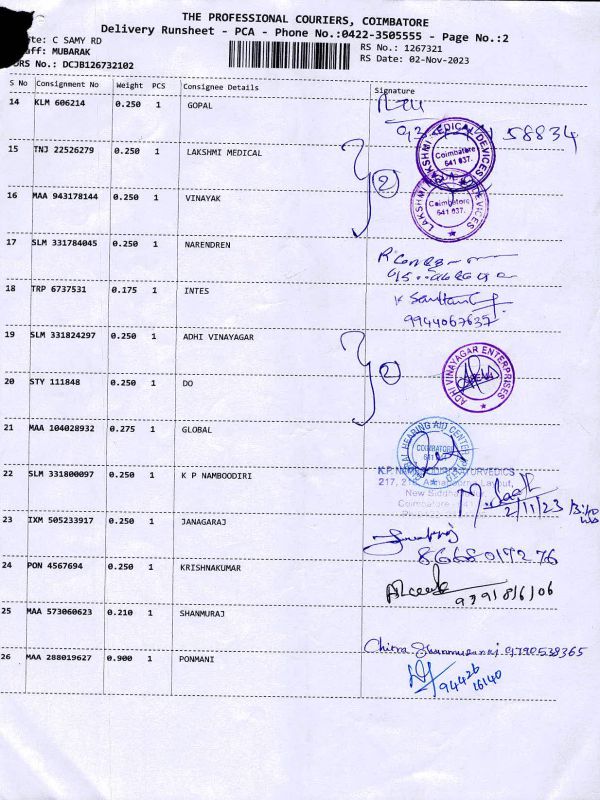 THE PROFESSIONAL COURIERS, COIMBATORE
Delivery Runsheet - PCA - Phone No.:0422-3505555 - Page No.:2
te: C SAMY RD
aff: MUBARAK
DRS No.: DCJB126732102
RS No.: 1267321
RS Date: 02-Nov-2023
S No Consignment No Weight PCS Consignee Details Signature
14 KLM 606214 0.250 1 GOPAL
58834
15 TNJ 22526279 0.250 1 LAKSHMI MEDICAL
LAKSHMI MEDICAL DEVICES
Coimbatore
641 037.
2
16 MAA 943178144 0.250 1 VINAYAK
LAKSHMI DEVICES
Coimbatore
641 037.
17 SLM 331784045 0.250 1 NARENDREN
18 TRP 6737531 0.175 1 INTES
9944067637
19 SLM 331824297 0.250 1 ADHI VINAYAGAR
2
ADHI VINAYAGAR ENTERPRISES
20 STY 111848 0.250 1 DO
21 MAA 104028932 0.275 1 GLOBAL
HEARING AID CENTER
COIMBATORE
22 SLM 331800097 0.250 1 K P NAMBOODIRI
217,
New Siddha
Coimbatore
2/11/23
23 IXM 505233917 0.250 1 JANAGARAJ
8668019276
24 PON 4567694 0.250 1 KRISHNAKUMAR
25 MAA 573060623 0.210 1 SHANMURAJ
Chitra 9790538365
26 MAA 288019627 0.900 1 PONMANI
94426
16140